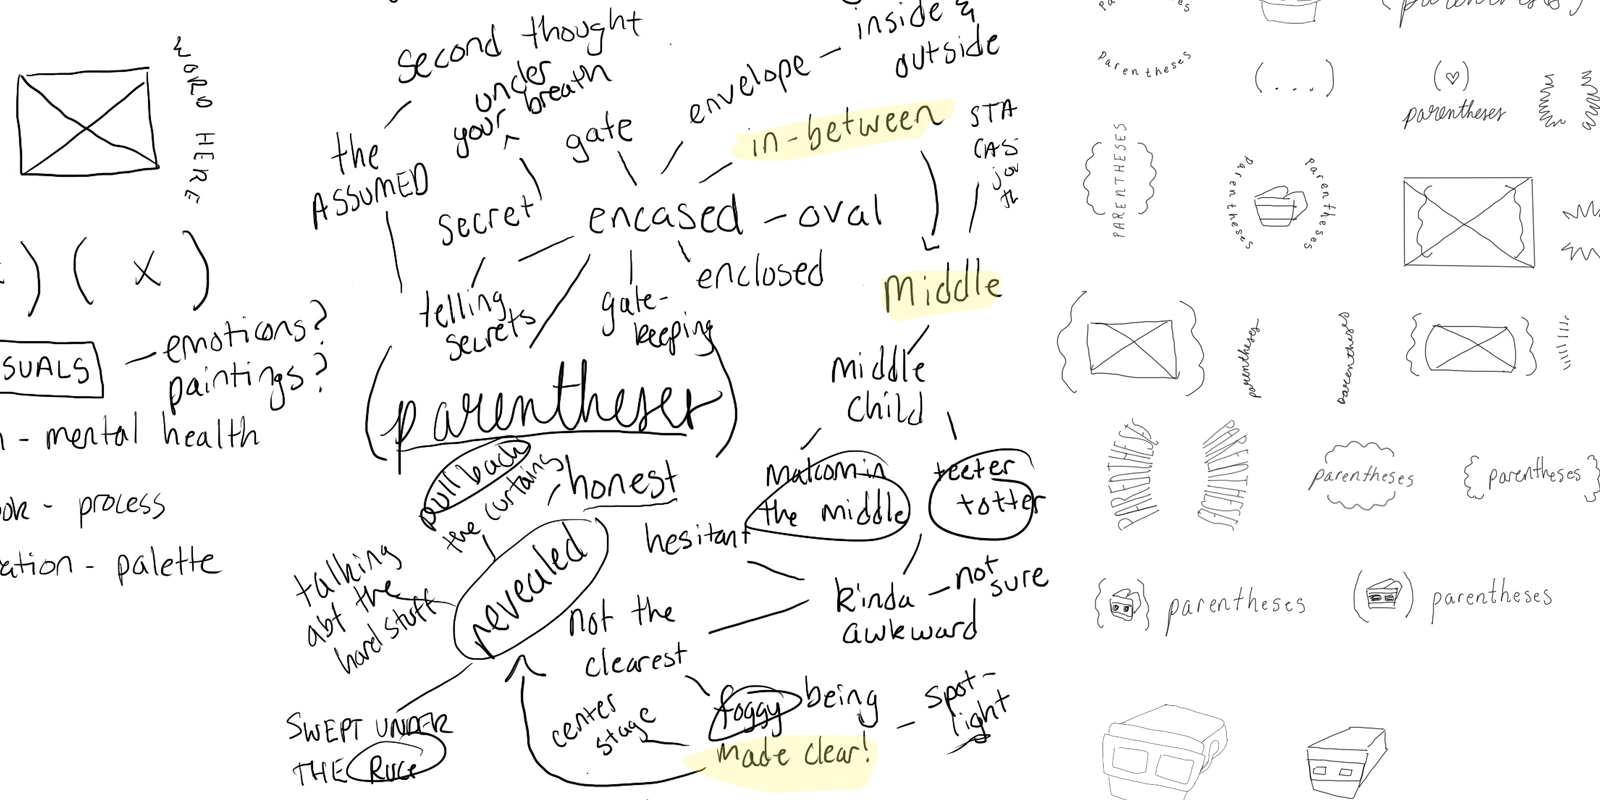 WORD HERE
) ( x )
SUALS
emoticons?
paintings?
- mental health
ok - process
ation - palette
second thought
under
your breath
the
ASSUMED
secret
telling
secrets
gate
envelope - inside &
outside
in-between
STA
CAS
encased - oval
enclosed
gate-
keeping
Middle
middle
child
Malcom in
the middle
teeter
totter
(parentheses)
pull back
the curtains
honest
revealed
talking
abt the
hard stuff
SWEPT UNDER
THE RUG
hesitant
kinda
awkward
not
sure
not the
clearest
center
stage
foggy being
made clear!
spot-
light
parentheses
parentheses
(...)
(♡)
parentheses
PARENTHESES
parentheses
parentheses
parentheses
parentheses
PARENTHESES
PARENTHESES
parentheses
{parentheses}
parentheses
parentheses